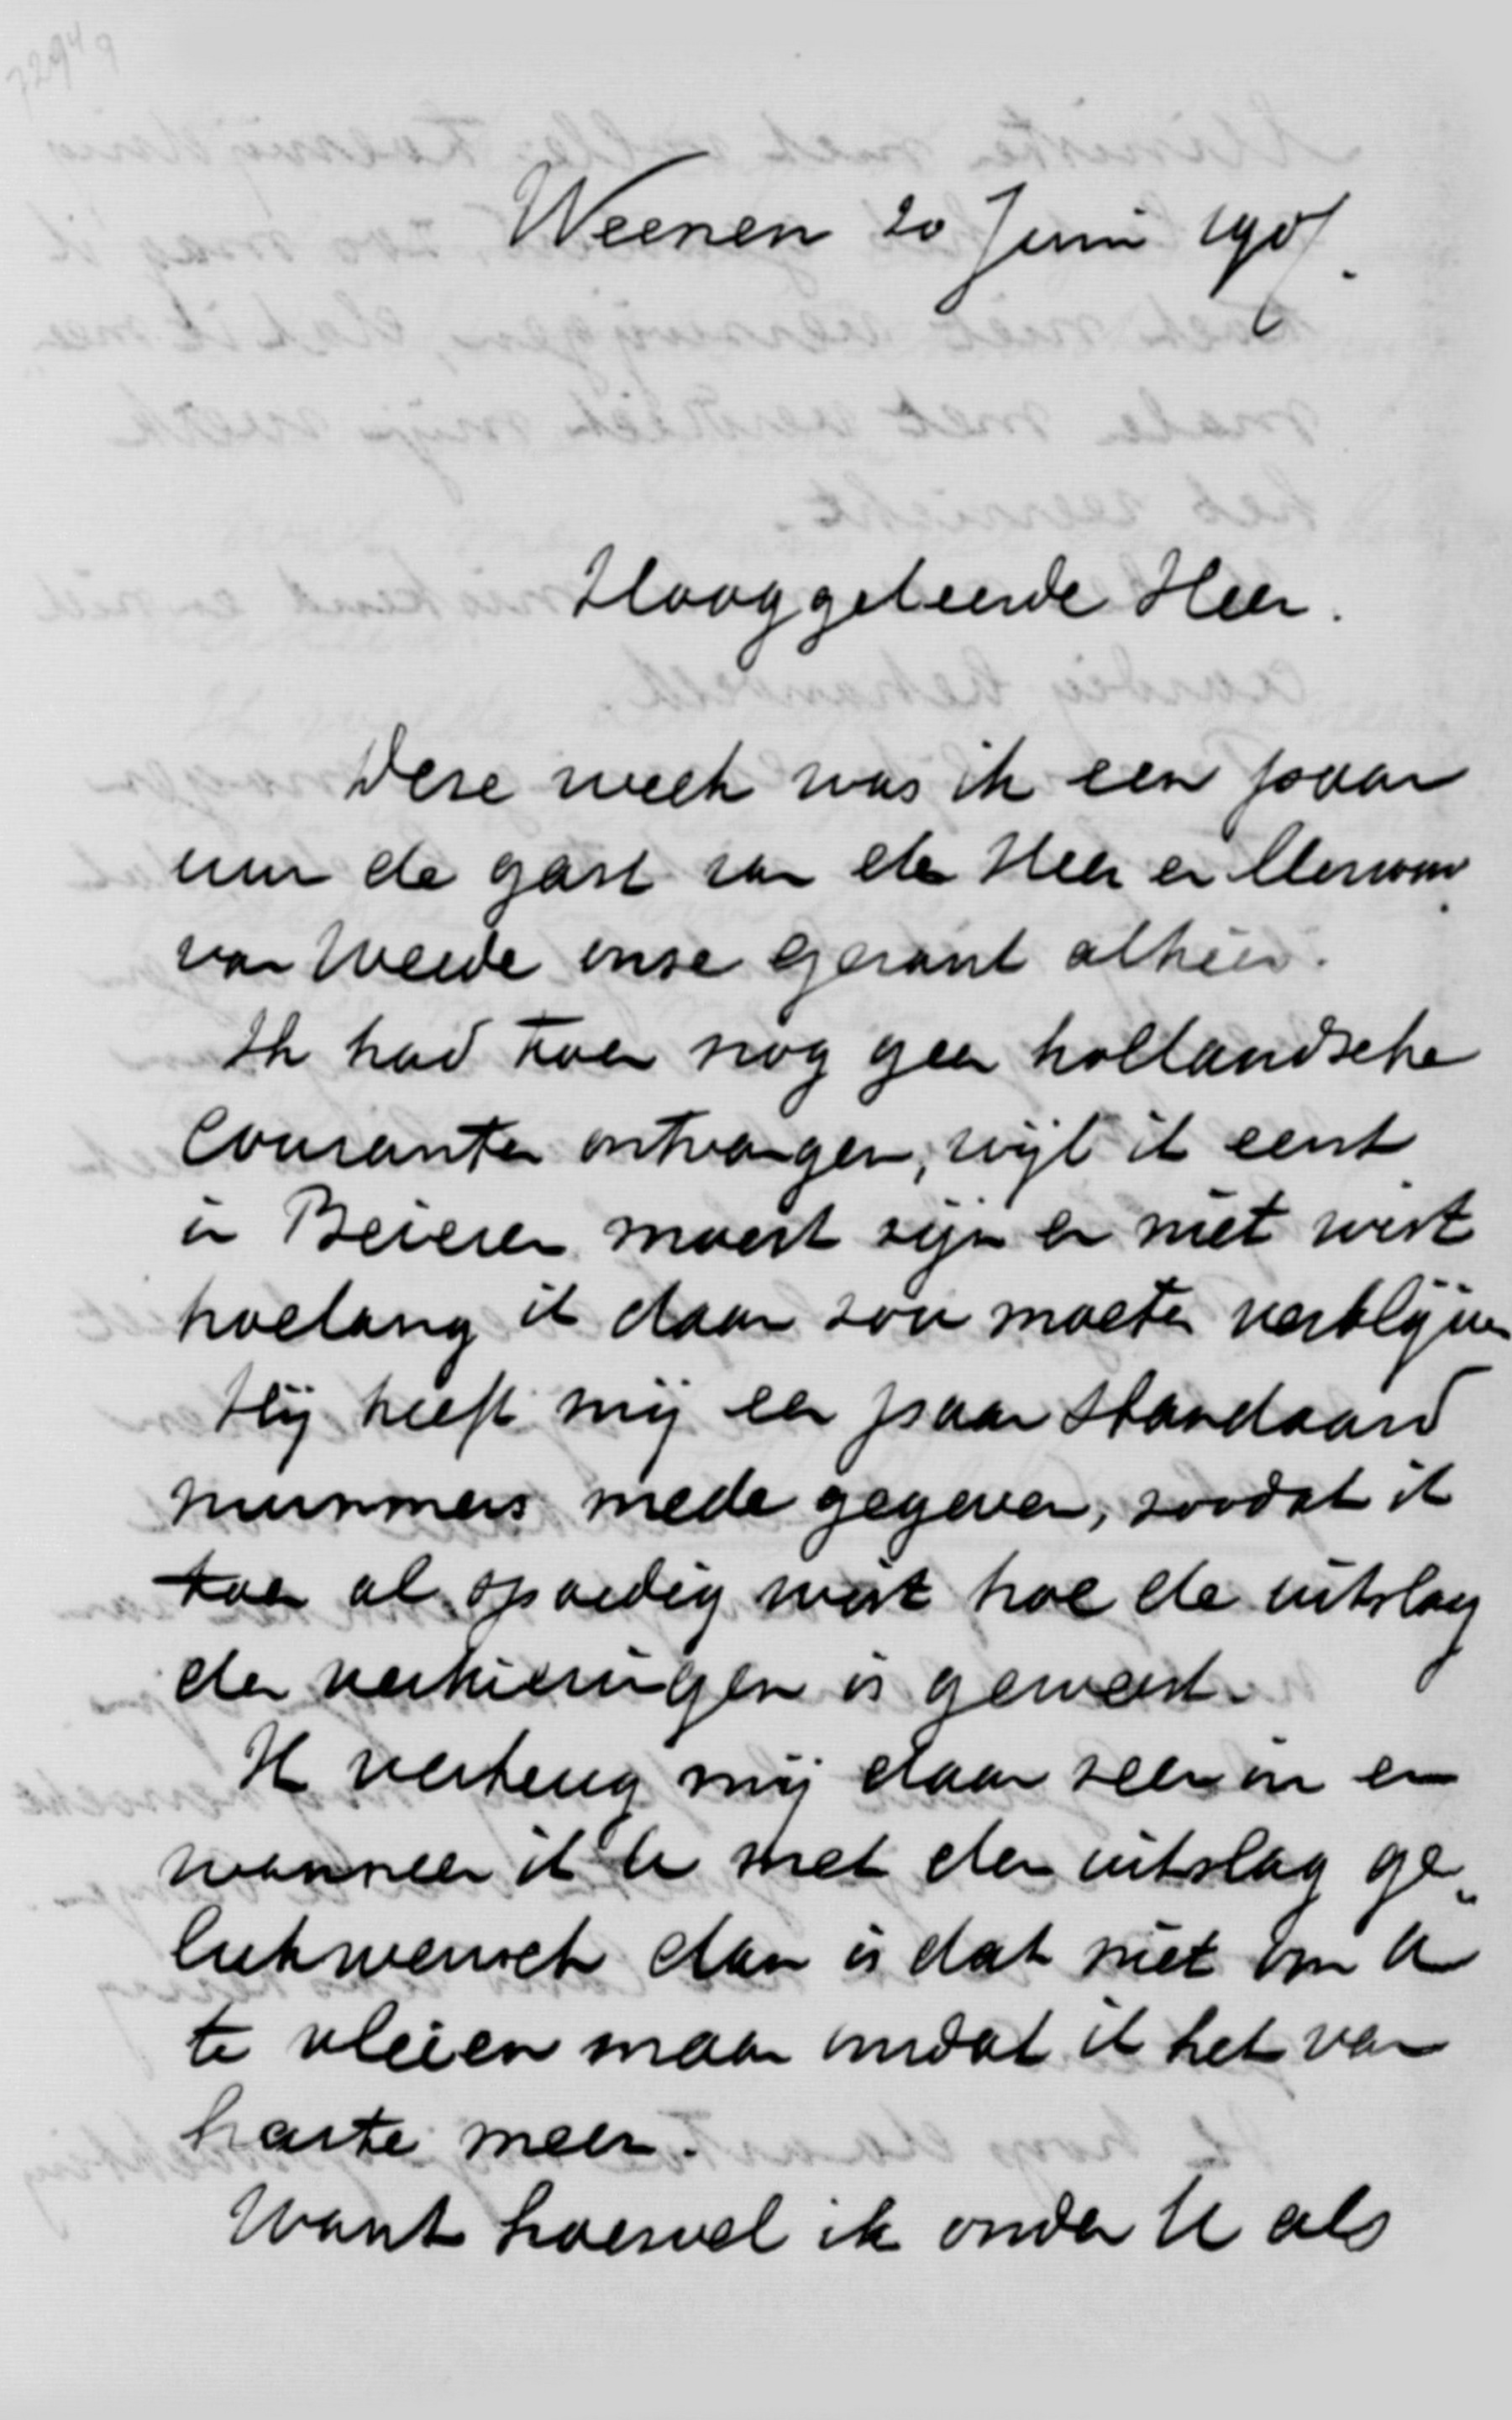 Weenen 20 Juni 190
Hooggeleerde Heer.
Deze week was ik een paar
uur de gast van den Heer en Mevrouw
van Weede onze gezant alhier.
Ik had toen nog geen hollandsche
Couranten ontvangen, wijl ik eerst
in Beieren moest zijn en niet wist
hoelang ik daar zou moeten verblijven
Hij heeft mij een paar Standaard
nummers mede gegeven, zoodat ik
toen al spoedig wist hoe de uitslag
der verkiezingen is geweest.
Ik verheug mij daar zeer in en
wanneer ik U met den uitslag ge„
lukwensch dan is dat niet om U
te vleien maar omdat ik het van
harte meen.
Want hoewel ik onder U als